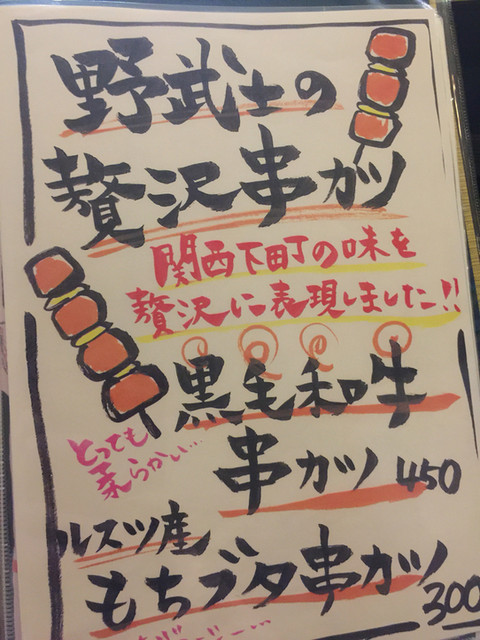 野武士の
贅沢串カツ
関西下町の味を
贅沢に表現しました!!
黒毛和牛
とっても
柔らかい…
串カツ 450
ルスツ産
もちブタ串カツ
300